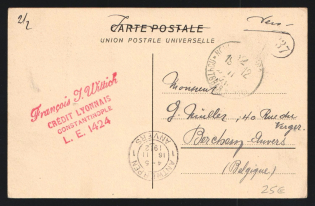 2/2
CARTE POSTALE
UNION POSTALE UNIVERSELLE
François J. Wittich
CRÉDIT LYONNAIS
CONSTANTINOPLE
L. E. 1424
Monsieur
J. Muller, 40 Rue du
Verger.
Berchem-Anvers
(Belgique)
ANVERS
ANTWERPEN
25€